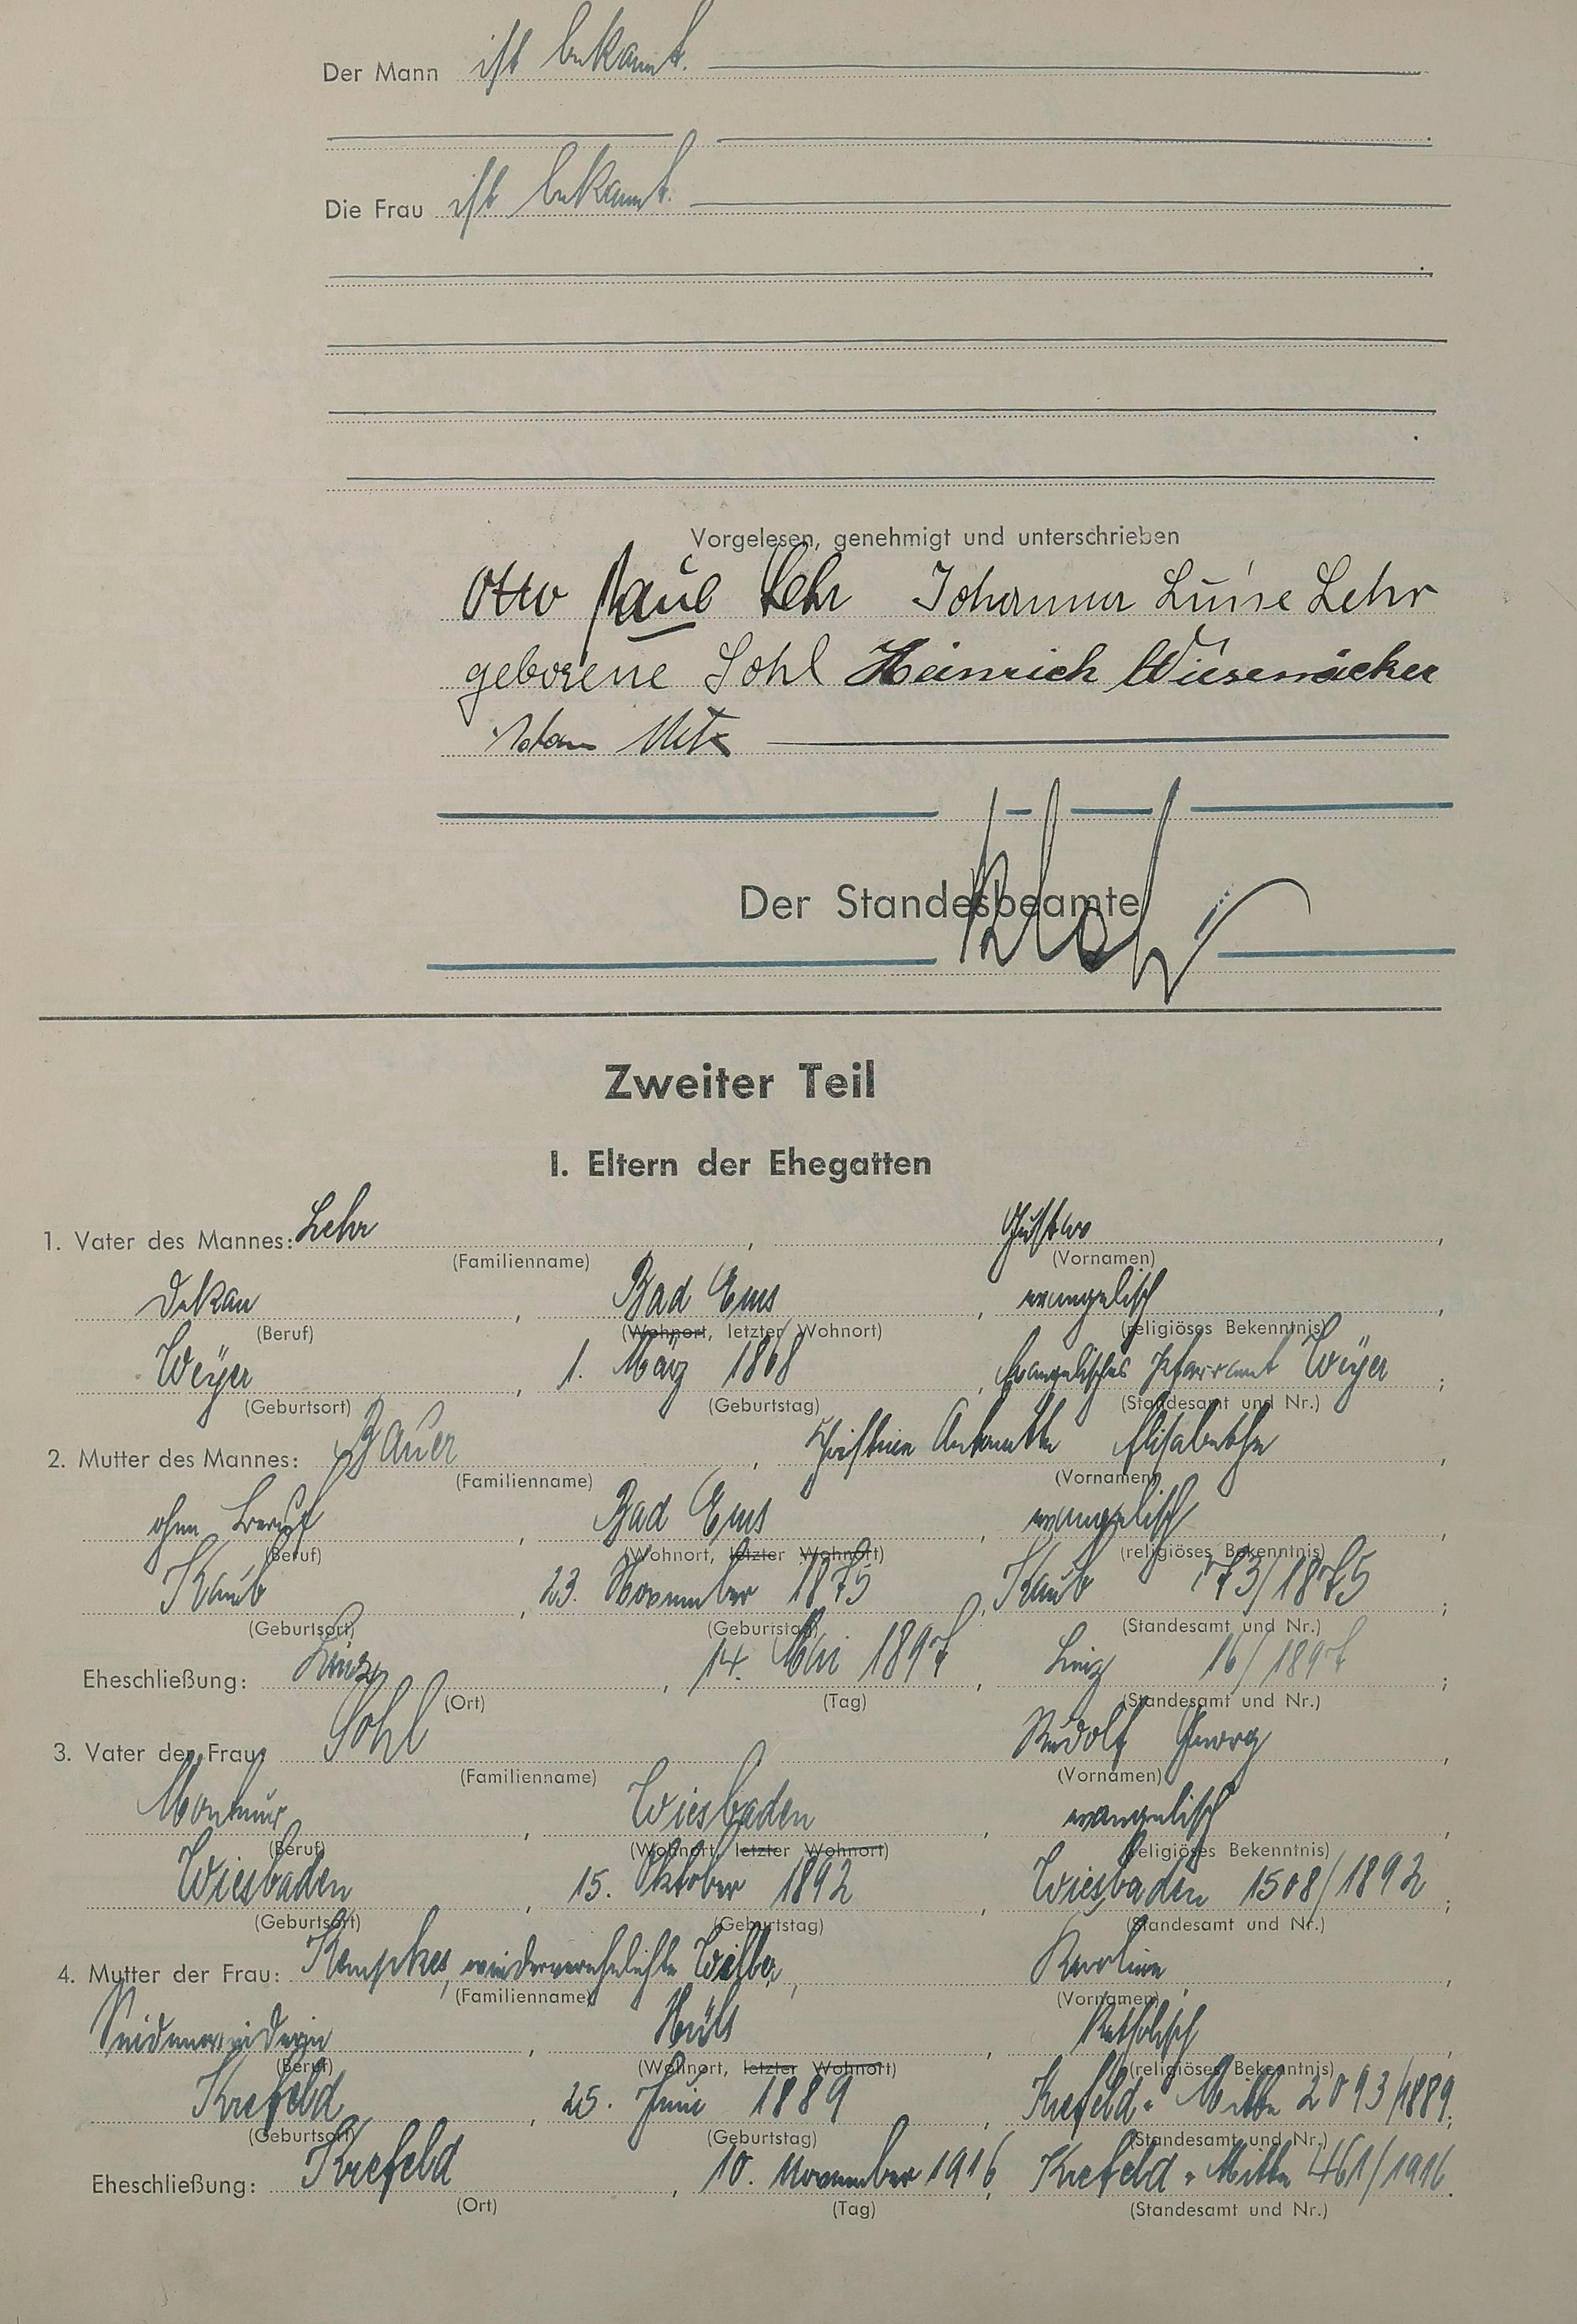 Der Mann ist bekannt.
Die Frau ist bekannt.
Vorgelesen, genehmigt und unterschrieben
Otto Paul Lehr Johanna Luise Lehr
geborene Sohl Heinrich Wiesenäcker
Adam Metz
Der Standesbeamte
Zweiter Teil
I. Eltern der Ehegatten
1. Vater des Mannes: Lehr, Gustav,
(Familienname) (Vornamen)
Dekan, Bad Ems, evangelisch,
(Beruf) (Wohnort, letzter Wohnort) (religiöses Bekenntnis)
Weyer, 1. März 1868, Evangelisches Pfarramt Weyer;
(Geburtsort) (Geburtstag) (Standesamt und Nr.)
2. Mutter des Mannes: Bauer, Christine Antonette Elisabethe,
(Familienname) (Vornamen)
ohne Beruf, Bad Ems, evangelisch,
(Beruf) (Wohnort, letzter Wohnort) (religiöses Bekenntnis)
Kaub, 23. November 1875, Kaub 73/1875;
(Geburtsort) (Geburtstag) (Standesamt und Nr.)
Eheschließung: 14. Mai 1897, 16/1897;
(Ort) (Tag) (Standesamt und Nr.)
3. Vater der Frau: Sohl, Rudolf Georg,
(Familienname) (Vornamen)
Monteur, Wiesbaden, evangelisch,
(Beruf) (Wohnort, letzter Wohnort) (religiöses Bekenntnis)
Wiesbaden, 15. Oktober 1892, Wiesbaden 1508/1892;
(Geburtsort) (Geburtstag) (Standesamt und Nr.)
4. Mutter der Frau: Kempkes, wiederverehelichte, Karoline,
(Familienname) (Vornamen)
Hüls, katholisch,
(Beruf) (Wohnort, letzter Wohnort) (religiöses Bekenntnis)
Krefeld, 25. Juni 1889, Krefeld-Mitte 2093/1889;
(Geburtsort) (Geburtstag) (Standesamt und Nr.)
Eheschließung: Krefeld, 10. November 1916, Krefeld-Mitte 461/1916.
(Ort) (Tag) (Standesamt und Nr.)